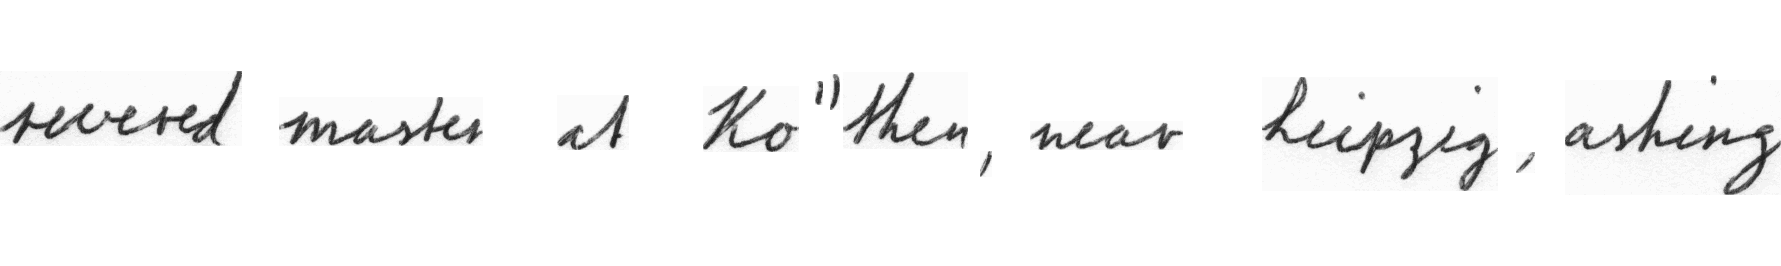 revered master at Ko"then, near Leipzig, asking